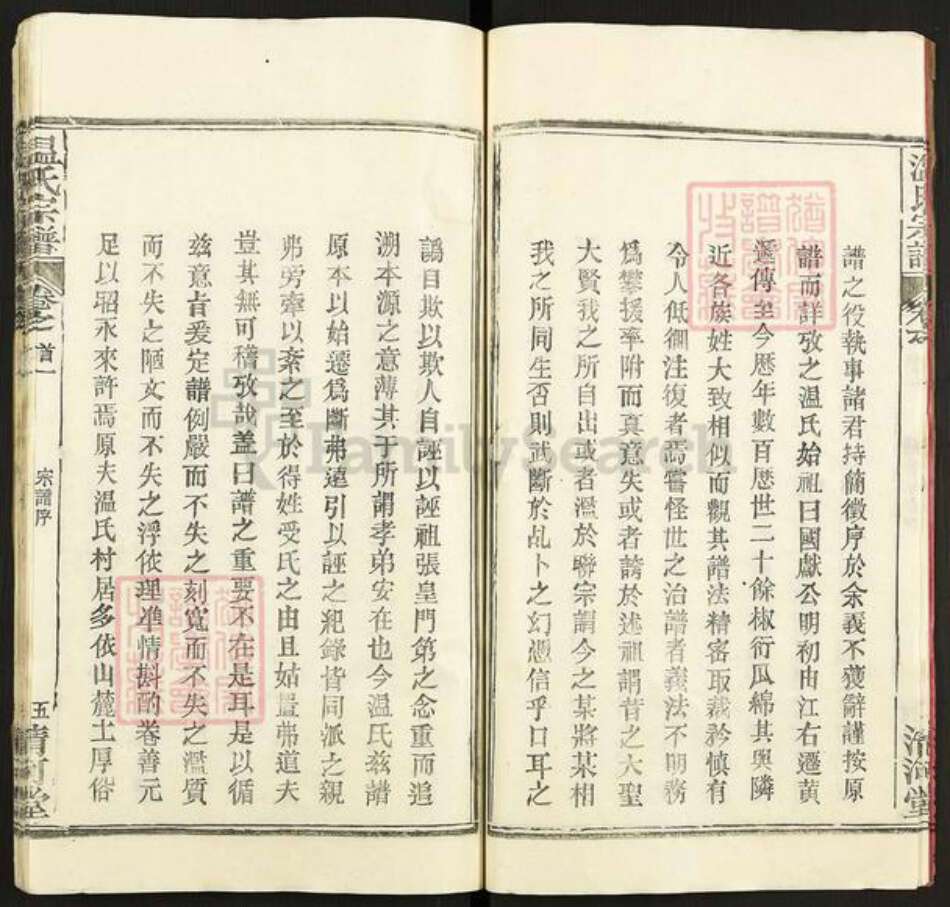 溫氏宗譜
清河堂
譜之役執事諸君持簡徵序於余義不獲辭謹按原
譜而詳攷之溫氏始祖曰國獻公明初由江右遷黃
遞傳至今歷年數百歷世二十餘椒衍瓜綿其與隣
近各族姓大致相似而觀其譜法精密取裁矜慎有
令人低徊往復者焉嘗怪世之治譜者義法不明務
爲攀援率附而真意失或者誇於述祖謂昔之大聖
大賢我之所自出或者濫於聯宗謂今之某將某相
我之所同生否則武斷於乩卜之幻憑信乎口耳之
譌自欺以欺人自誣以誣祖張皇門第之念重而追
溯本源之意薄其于所謂孝弟安在也今溫氏茲譜
原本以始遷爲斷弗遠引以誣之紀錄皆同派之親
弗旁牽以紊之至於得姓受氏之由且姑置弗道夫
豈其無可稽攷哉蓋曰譜之重要不在是耳是以循
茲意旨爰定譜例嚴而不失之刻寬而不失之濫質
而不失之陋文而不失之浮依理準情斟酌卷善元
足以昭永來許焉原夫溫氏村居多依山麓土厚俗
温氏宗譜
卷之首一
宗譜序
五
清河堂
FamilySearch